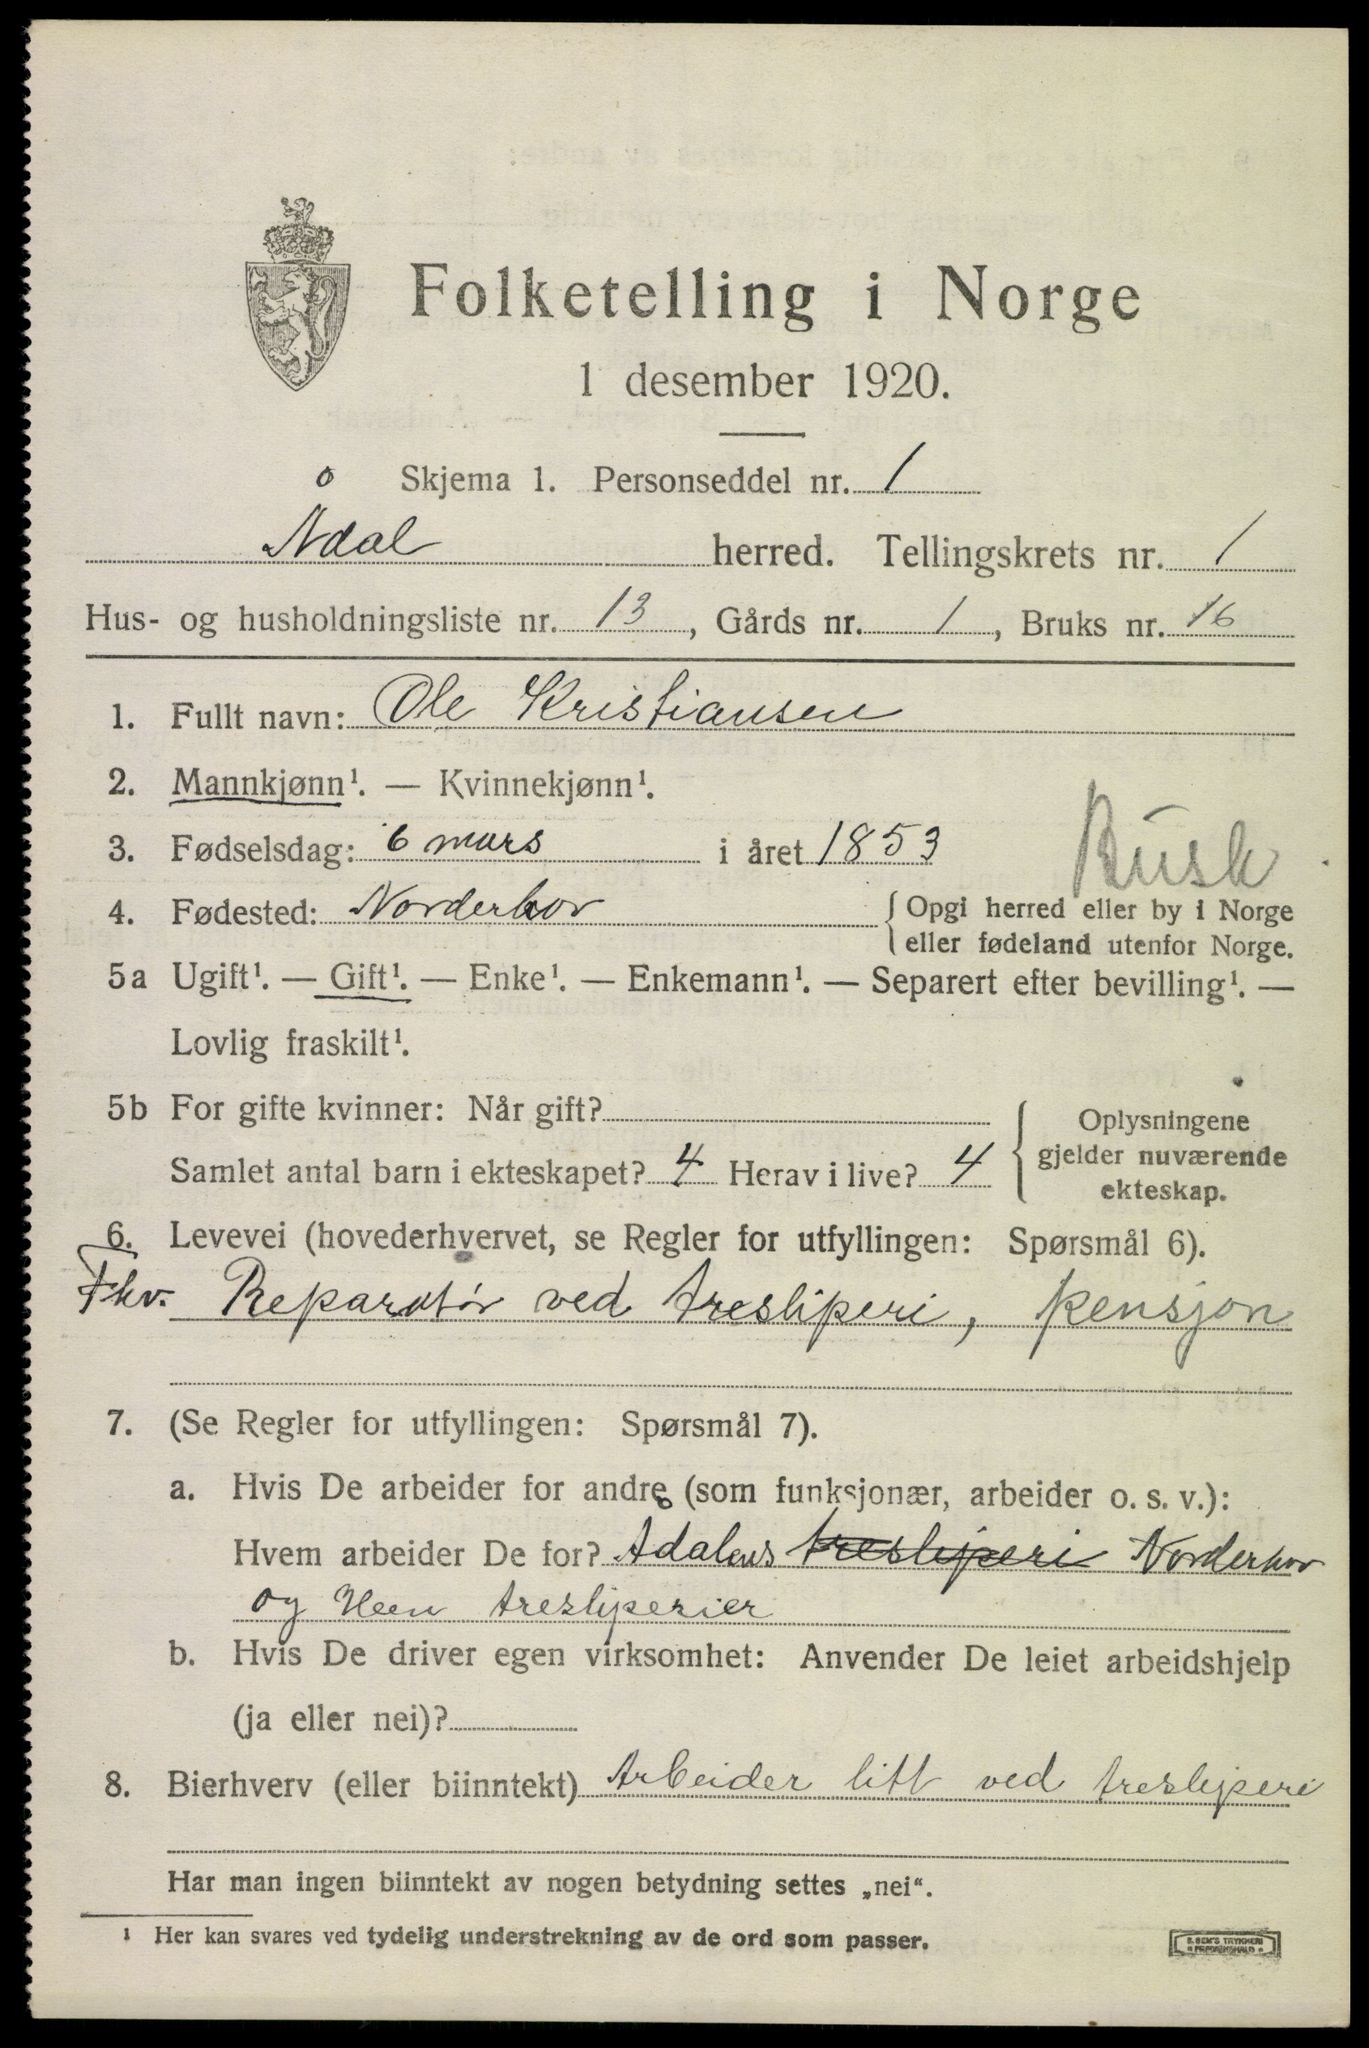 Folketelling i Norge
1 desember 1920.
Skjema 1. Personseddel nr. 1
Ådal herred. Tellingskrets nr. 1
Hus- og husholdningsliste nr. 13, Gårds nr. 1, Bruks nr. 16
1. Fullt navn: Ole Kristiansen
2. Mannkjønn¹. — Kvinnekjønn¹.
3. Fødselsdag: 6 mars i året 1853
Busk
4. Fødested: Norderhov { Opgi herred eller by i Norge
eller fødeland utenfor Norge.
5a Ugift¹. — Gift¹. — Enke¹. — Enkemann¹. — Separert efter bevilling¹. —
Lovlig fraskilt¹.
5b For gifte kvinner: Når gift?
Samlet antal barn i ekteskapet? 4 Herav i live? 4
{ Oplysningene
gjelder nuværende
ekteskap.
6. Levevei (hovederhvervet, se Regler for utfyllingen: Spørsmål 6).
Fhv. Reparatør ved tresliperi, pensjon
7. (Se Regler for utfyllingen: Spørsmål 7).
a. Hvis De arbeider for andre (som funksjonær, arbeider o. s. v.):
Hvem arbeider De for? Ådalens tresliperi Norderhov
og Heen tresliperier
b. Hvis De driver egen virksomhet: Anvender De leiet arbeidshjelp
(ja eller nei)?
8. Bierhverv (eller biinntekt) Arbeider litt ved tresliperi
Har man ingen biinntekt av nogen betydning settes „nei".
¹ Her kan svares ved tydelig understrekning av de ord som passer.